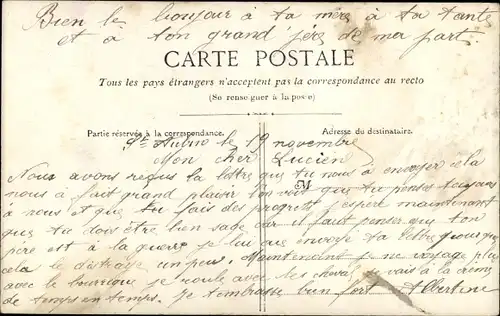 Bien le bonjour à ta mère à ta tante
et à ton grand père de ma part.
CARTE POSTALE
Tous les pays étrangers n'acceptent pas la correspondance au recto
(Se renseigner à la poste)
Partie réservée à la correspondance.
Adresse du destinataire.
St Aubin le 19 novembre
Mon cher Lucien
M
Nous avons reçus la lettre que tu nous à envoyer cela
nous à fait grand plaisir que tu penses toujours
à nous et que tu fais des progrets j'espère maintenant
que tu dois être bien sage car il faut penser que ton
père est à la guerre je lui envoye ta lettre pour que
cela le distraye un peu. Maintenant je ne voyage plus
avec le bourrique je roule avec les cheval je vais à la
de temps en temps. Je t'embrasse bien fort Albertine